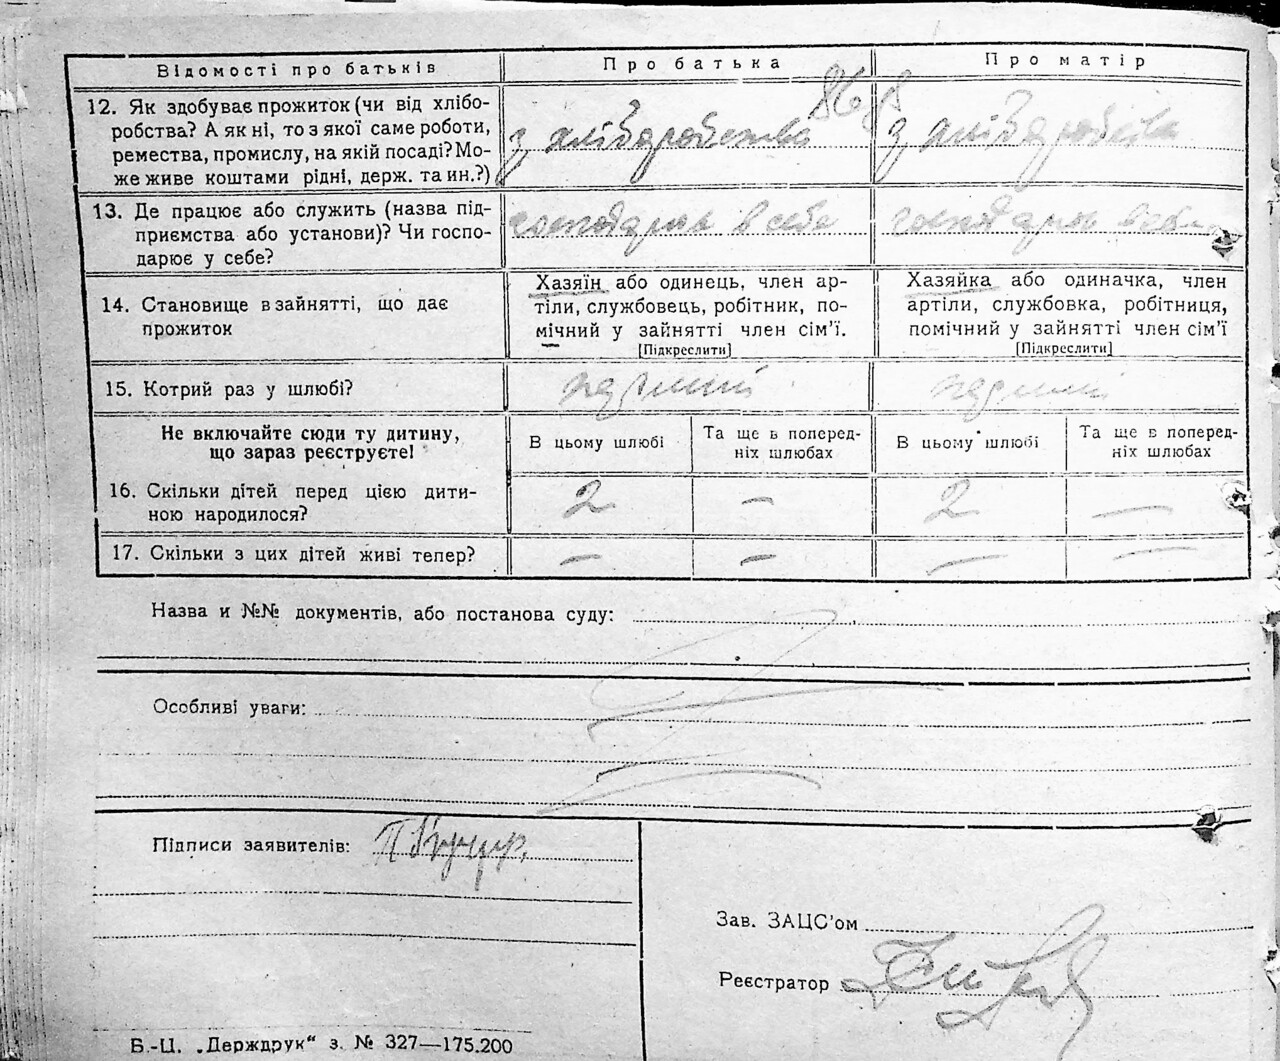 Відомості про батьків
Про батька
Про матір
12. Як здобуває прожиток (чи від хлібо-
робства? А як ні, то з якої саме роботи,
ремества, промислу, на якій посаді? Мо-
же живе коштами рідні, держ. та ин.?)
з хліборобства
з хліборобства
13. Де працює або служить (назва під-
приємства або установи)? Чи госпо-
дарює у себе?
в себе
14. Становище в зайнятті, що дає
прожиток
Хазяїн або одинець, член ар-
тіли, службовець, робітник, по-
мічний у зайнятті член сім’ї.
[Підкреслити]
Хазяйка або одиначка, член
артіли, службовка, робітниця,
помічний у зайнятті член сім’ї
[Підкреслити]
15. Котрий раз у шлюбі?
Не включайте сюди ту дитину,
що зараз реєструєте!
В цьому шлюбі
Та ще в поперед-
ніх шлюбах
В цьому шлюбі
Та ще в поперед-
ніх шлюбах
16. Скільки дітей перед цією дити-
ною народилося?
2 — 2 —
17. Скільки з цих дітей живі тепер?
— — — —
Назва и №№ документів, або постанова суду:
Особливі уваги:
Підписи заявителів:
Зав. ЗАЦС’ом
Реєстратор
Б.-Ц. „Держдрук“ з. № 327—175.200